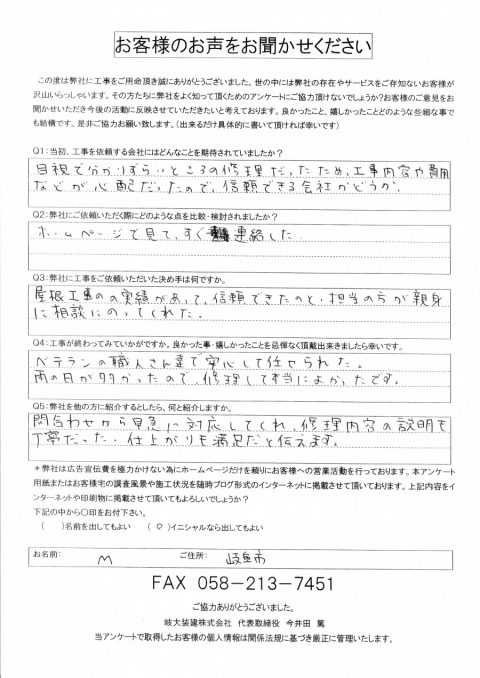 お客様のお声をお聞かせください
この度は弊社に工事をご用命頂き誠にありがとうございました。世の中には弊社の存在やサービスをご存知ないお客様が
沢山いらっしゃいます。その方たちに弊社をよく知って頂くためのアンケートにご協力頂けないでしょうか?お客様のご意見をお
聞かせいただき今後の活動に反映させていただきたいと考えております。良かったこと、嬉しかったことどのような些細な事で
も結構です。是非ご協力お願い致します。(出来るだけ具体的に書いて頂ければ幸いです)
Q1:当初、工事を依頼する会社にはどんなことを期待されていましたか?
目視で分かりずらいところの修理だったため、工事内容や費用
などが心配だったので、信頼できる会社かどうか。
Q2:弊社にご依頼いただく際にどのような点を比較・検討されましたか?
ホームページで見て、すぐ連絡した。
Q3:弊社に工事をご依頼いただいた決め手は何ですか。
屋根工事のの実績があって、信頼できたのと、担当の方が親身
に相談にのってくれた。
Q4:工事が終わってみていかがですか。良かった事・嬉しかったことを忌憚なく頂戴出来きましたら幸いです。
ベテランの職人さん達で安心して任せられた。
雨の日が多かったので、修理して本当によかったです。
Q5:弊社を他の方に紹介するとしたら、何と紹介しますか。
問合わせから早急に対応してくれ、修理内容の説明も
丁寧だった。仕上がりも満足だと伝えます。
*弊社は広告宣伝費を極力かけない為にホームページだけを頼りにお客様への営業活動を行っております。本アンケート
用紙またはお客様宅の調査風景や施工状況を随時ブログ形式のインターネットに掲載させて頂いております。上記内容をイ
ンターネットや印刷物に掲載させて頂いてもよろしいでしょうか?
下記の中から〇印をお付下さい。
( )名前を出してもよい (○)イニシャルなら出してもよい
お名前: M ご住所: 岐阜市
FAX 058-213-7451
ご協力ありがとうございました。
岐大装建株式会社 代表取締役 今井田 篤
当アンケートで取得したお客様の個人情報は関係法規に基づき厳正に管理いたします。